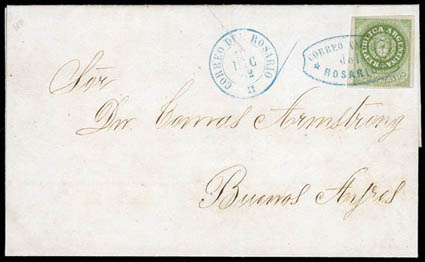 CORREO DEL ROSARIO
DIC
CORREO
de
ROSARIO
REPUBLICA ARGENTINA
Sör
Dn Tomas Armstrong
Buenos Ayres